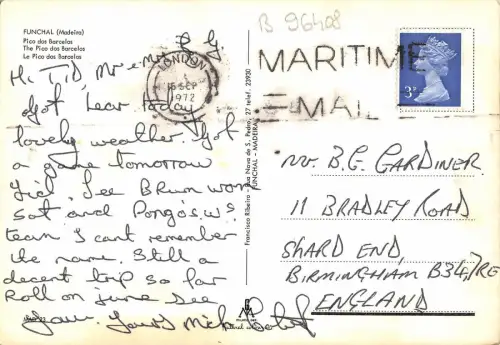 B 96408
FUNCHAL (Madeira)
Pico dos Barcelos
The Pico dos Barcelos
Le Pico dos Barcelos
LONDON
SEP
1972
MARITIME
MAIL
3P
Francisco Ribeiro Rua Nova de S. Pedro, 27 telef. 23930
FUNCHAL - MADEIRA
Hi
Got hear today
lovely weather. Got
a game tomorrow
See Brum won
sat and Pongo's
team I cant remember
the name. Still a
decent trip so far
Roll on june see
you. Yours Mick
Mr. B.G. GARDINER.
11 BRADLEY ROAD
SHARD END,
BIRMINGHAM B34,7RE
ENGLAND